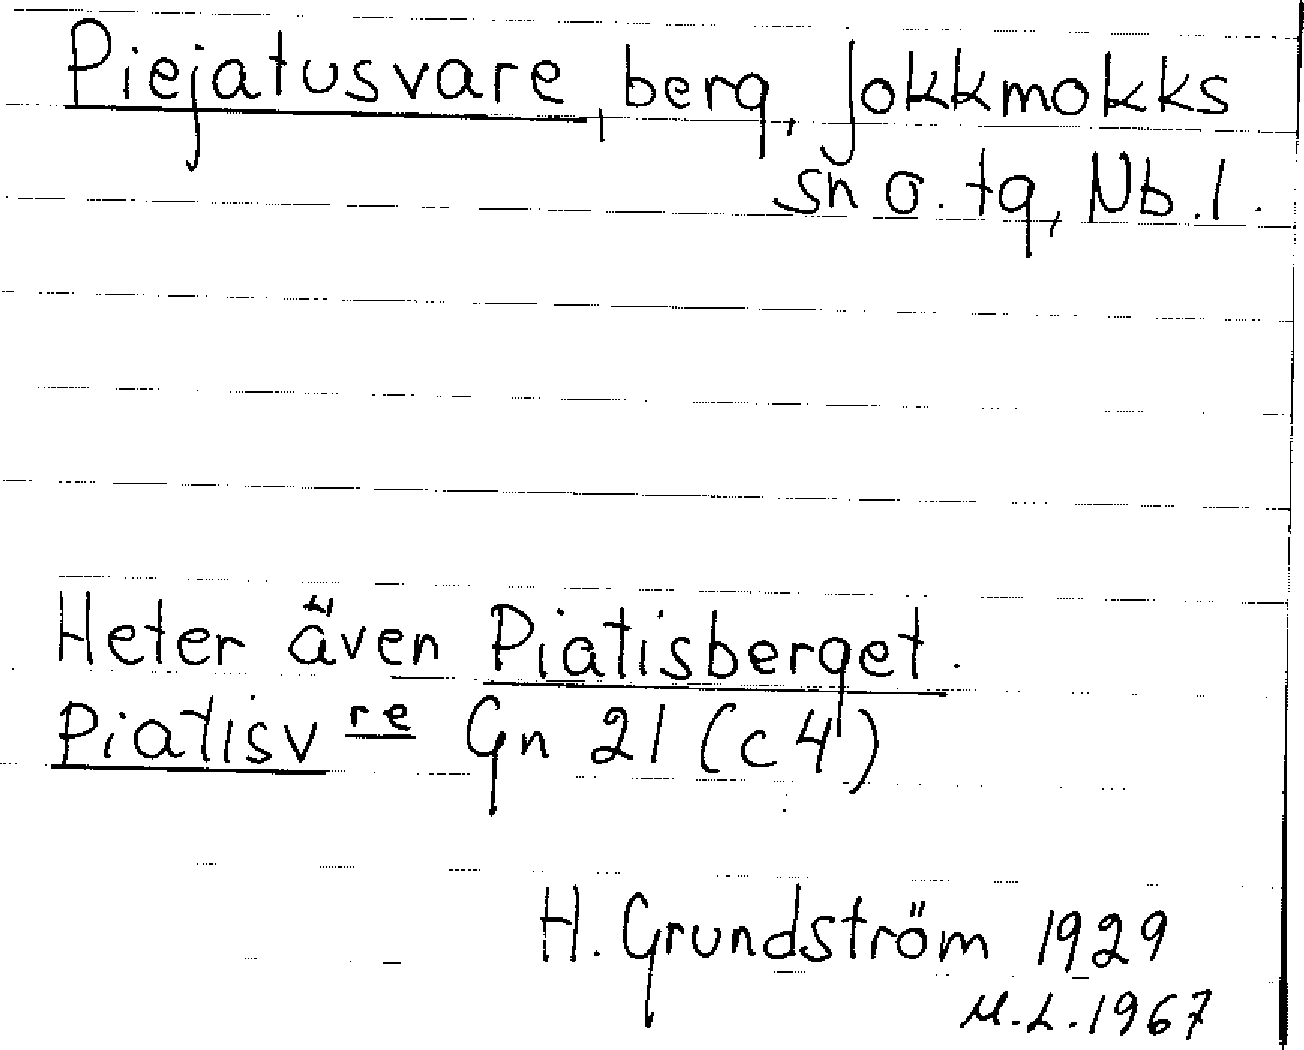 Piejatusvare, berg, Jokkmokks
sn o. tg, Nb. l.
Heter även Piatisberget.
Piatisvre Gn 21 (c4)
H. Grundström 1929
M.L. 1967